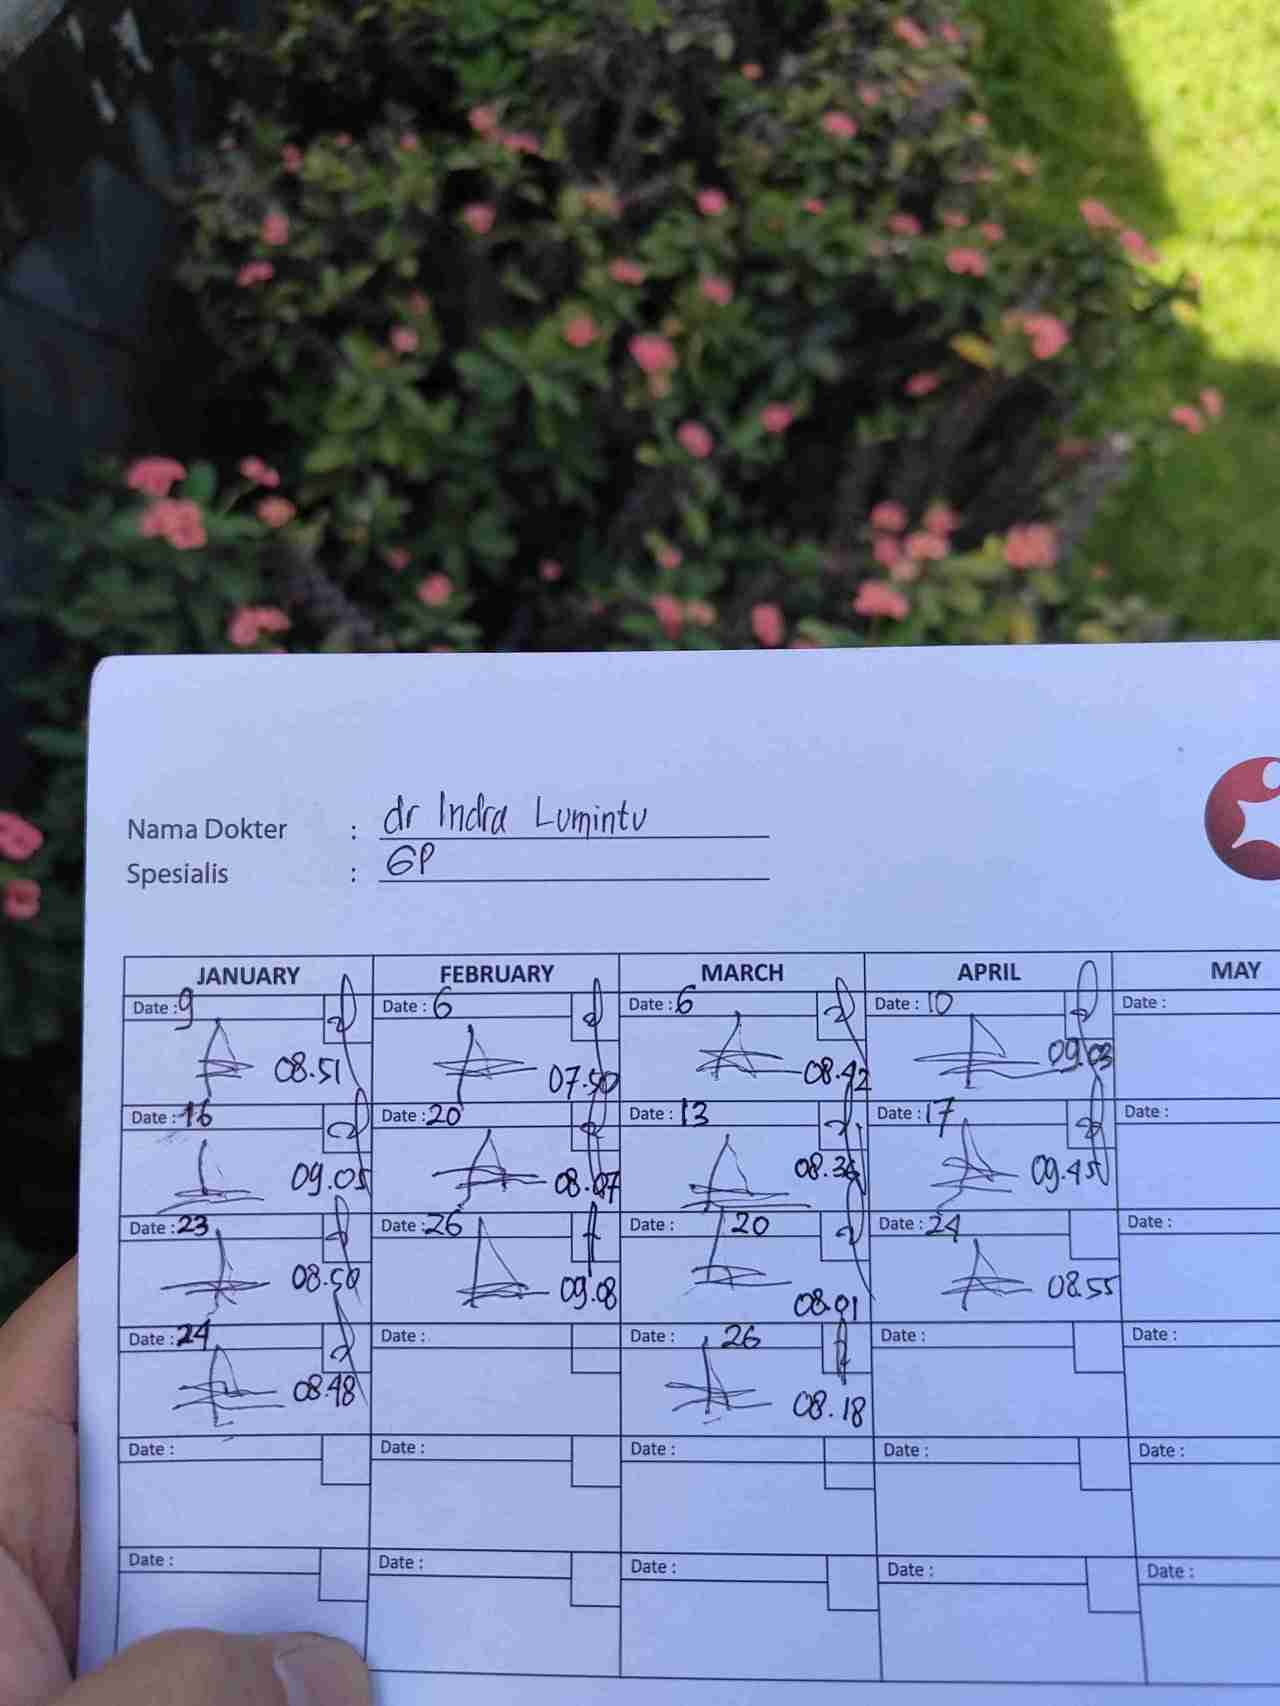 Nama Dokter : dr Indra Lumintu
Spesialis : GP
JANUARY FEBRUARY MARCH APRIL MAY
Date : 9 Date : 6 Date : 6 Date : 10 Date :
08.51 07.50 08.42 09.03
Date : 16 Date : 20 Date : 13 Date : 17 Date :
09.05 08.07 08.36 09.45
Date : 23 Date : 26 Date : 20 Date : 24 Date :
08.50 09.08 08.01 08.55
Date : 24 Date : Date : 26 Date : Date :
08.48 08.18
Date : Date : Date : Date : Date :
Date : Date : Date : Date : Date :